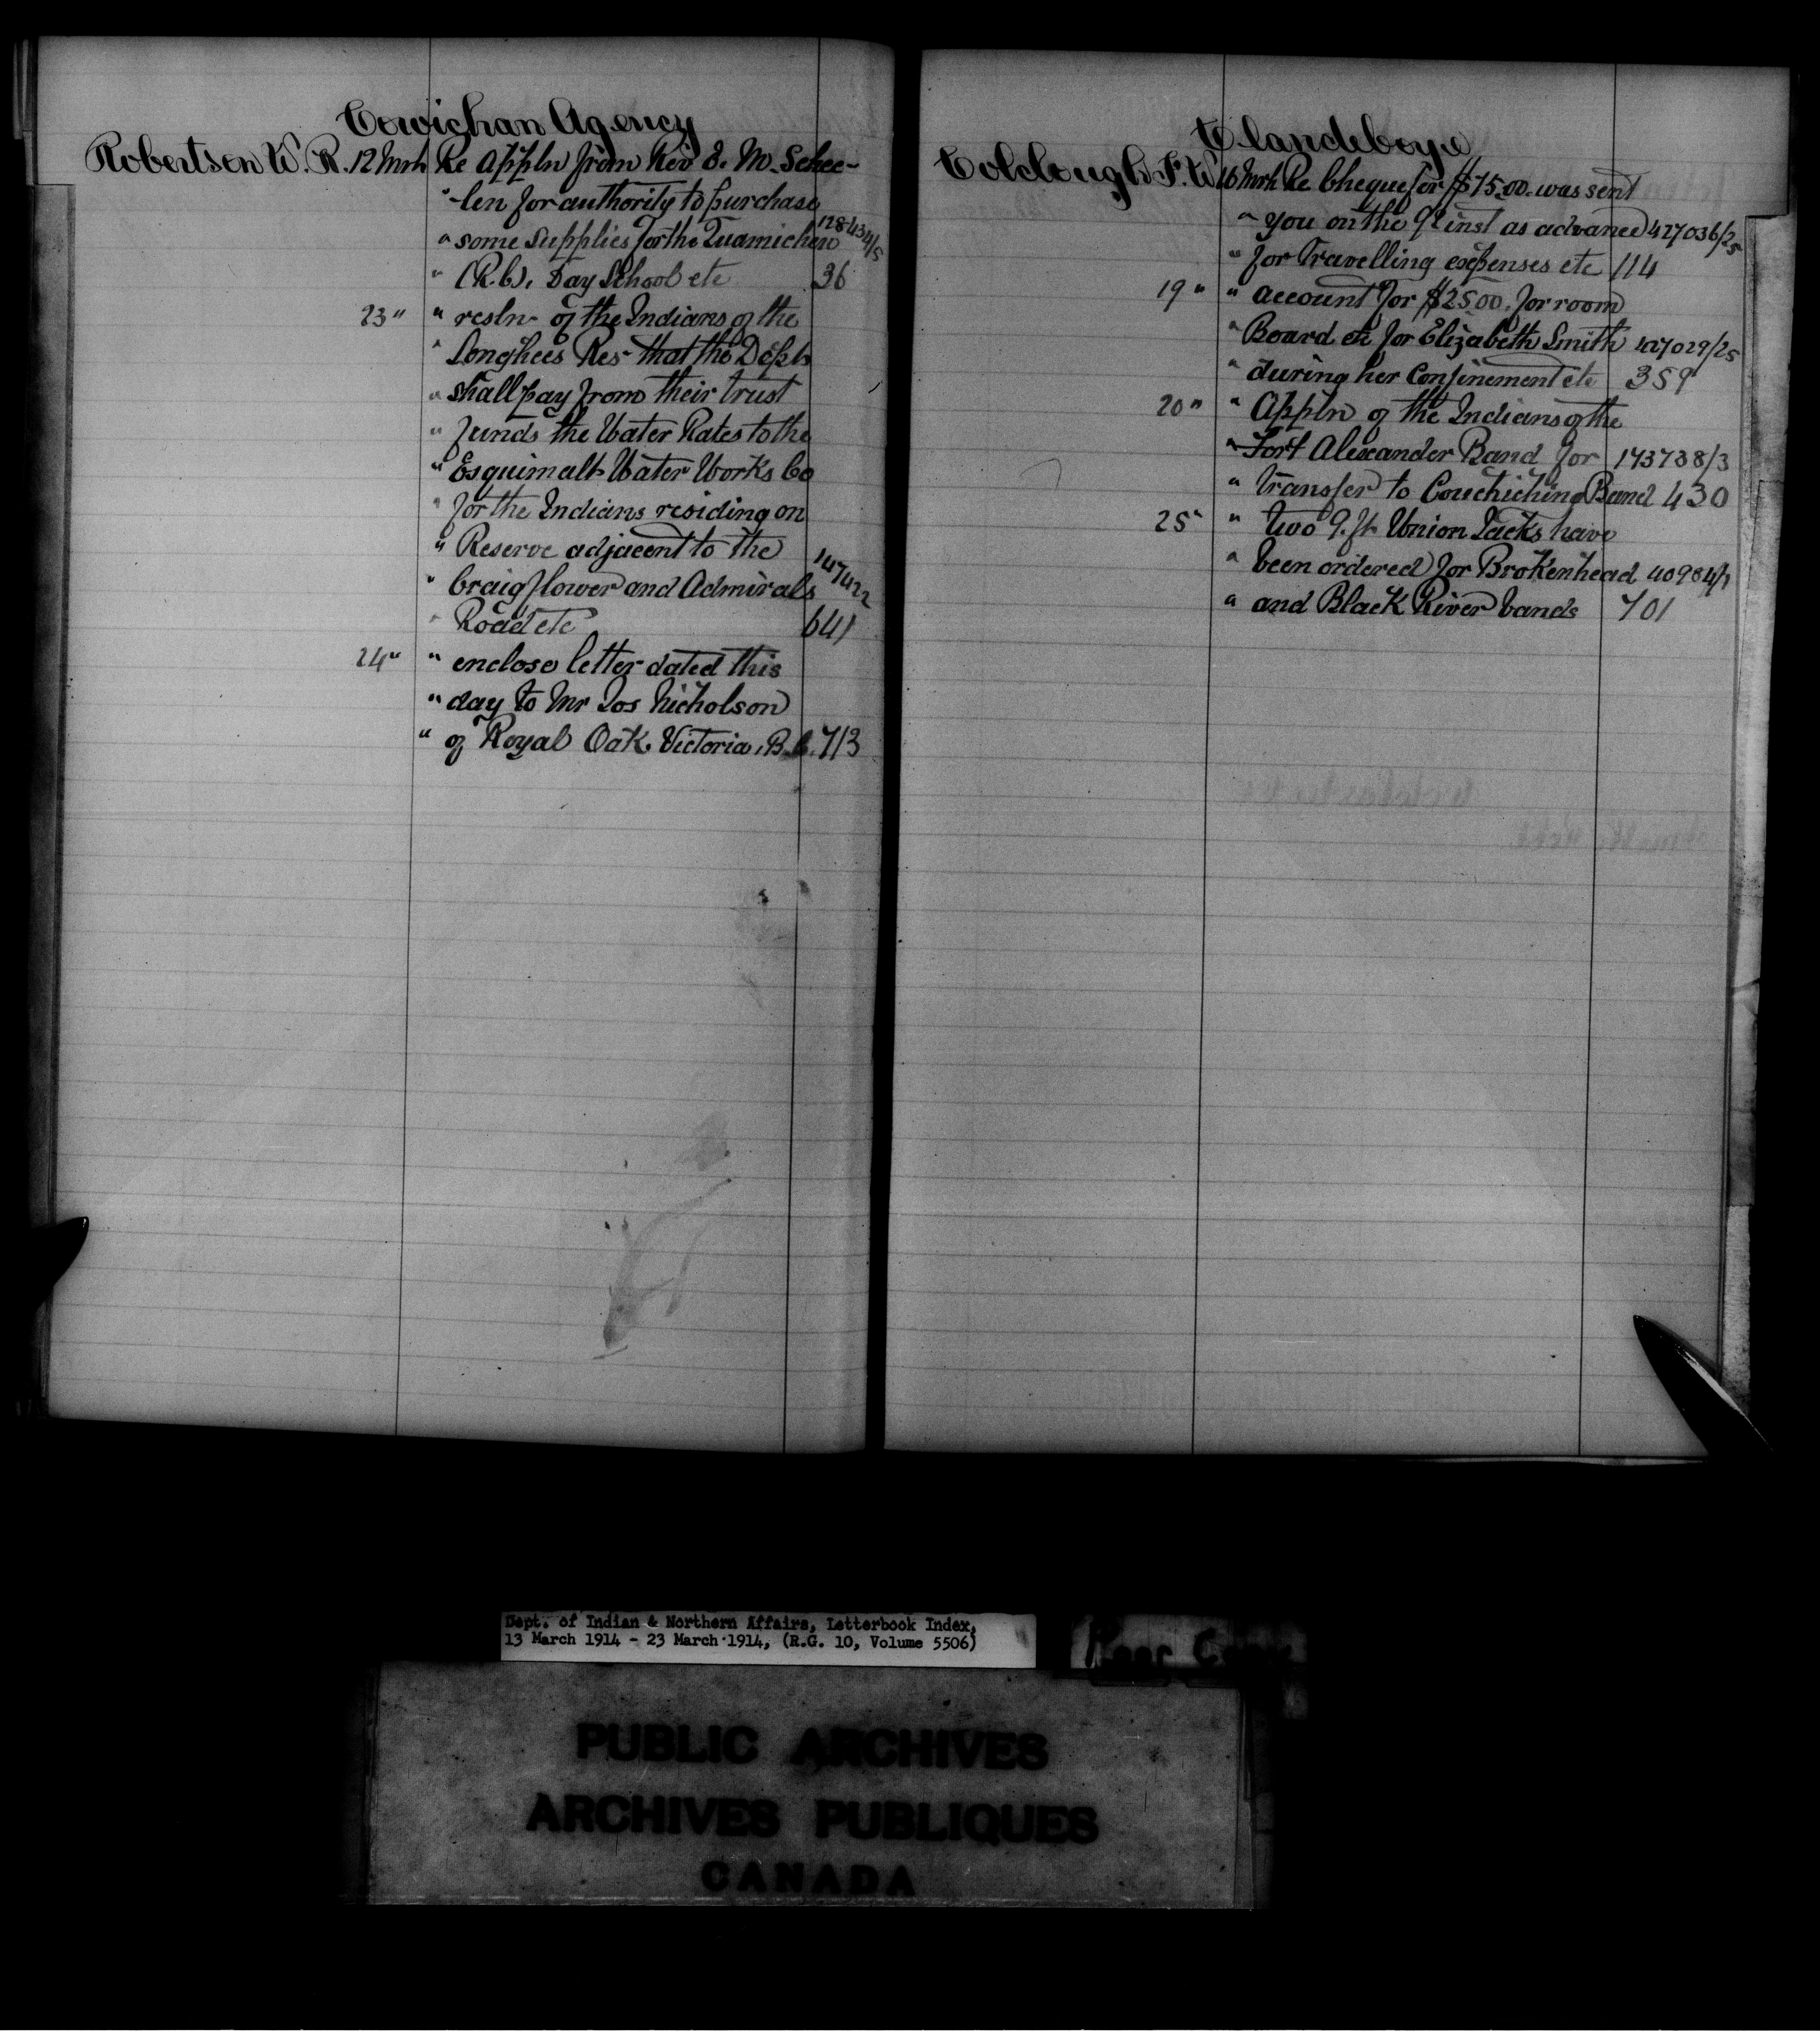 Cowichan Agency
Robertson W. R. 12 Mrh Re Appln from Rev E. M. Schee-
" -len for authority to purchase
" some supplies for the Quamichan 128434/5
" (R.C.). Day School etc 36
23 " " resln of the Indians of the
" Songhees Res- that the Dept
" shall pay from their trust
" funds the Water Rates to the
" Esquimalt Water Works Co
" for the Indians residing on
" Reserve adjacent to the
" Craigflower and Admirals 147422
" Road etc 641
24 " " enclose letter dated this
" day to Mr Jos Nicholson
" of Royal Oak, Victoria, B.C. 713
Clandeboye
Colclough F. W. 16 Mrh Re Cheque for $75.00. was sent
" you on the 9th inst as advance 427036/25
" for Travelling expenses etc 114
19 " " account for $25.00. for room
" Board etc for Elizabeth Smith 427029/25
" during her Confinement etc 359
20 " " Appln of the Indians of the
" Fort Alexander Band for 173738/3
" transfer to Couchiching Band 430
25 " " two 9. ft Union Jacks have
" been ordered for Brokenhead 40984/1
" and Black River bands 701
Dept. of Indian & Northern Affairs, Letterbook Index,
13 March 1914 - 23 March 1914, (R.G. 10, Volume 5506)
Poor Copy
PUBLIC ARCHIVES
ARCHIVES PUBLIQUES
CANADA